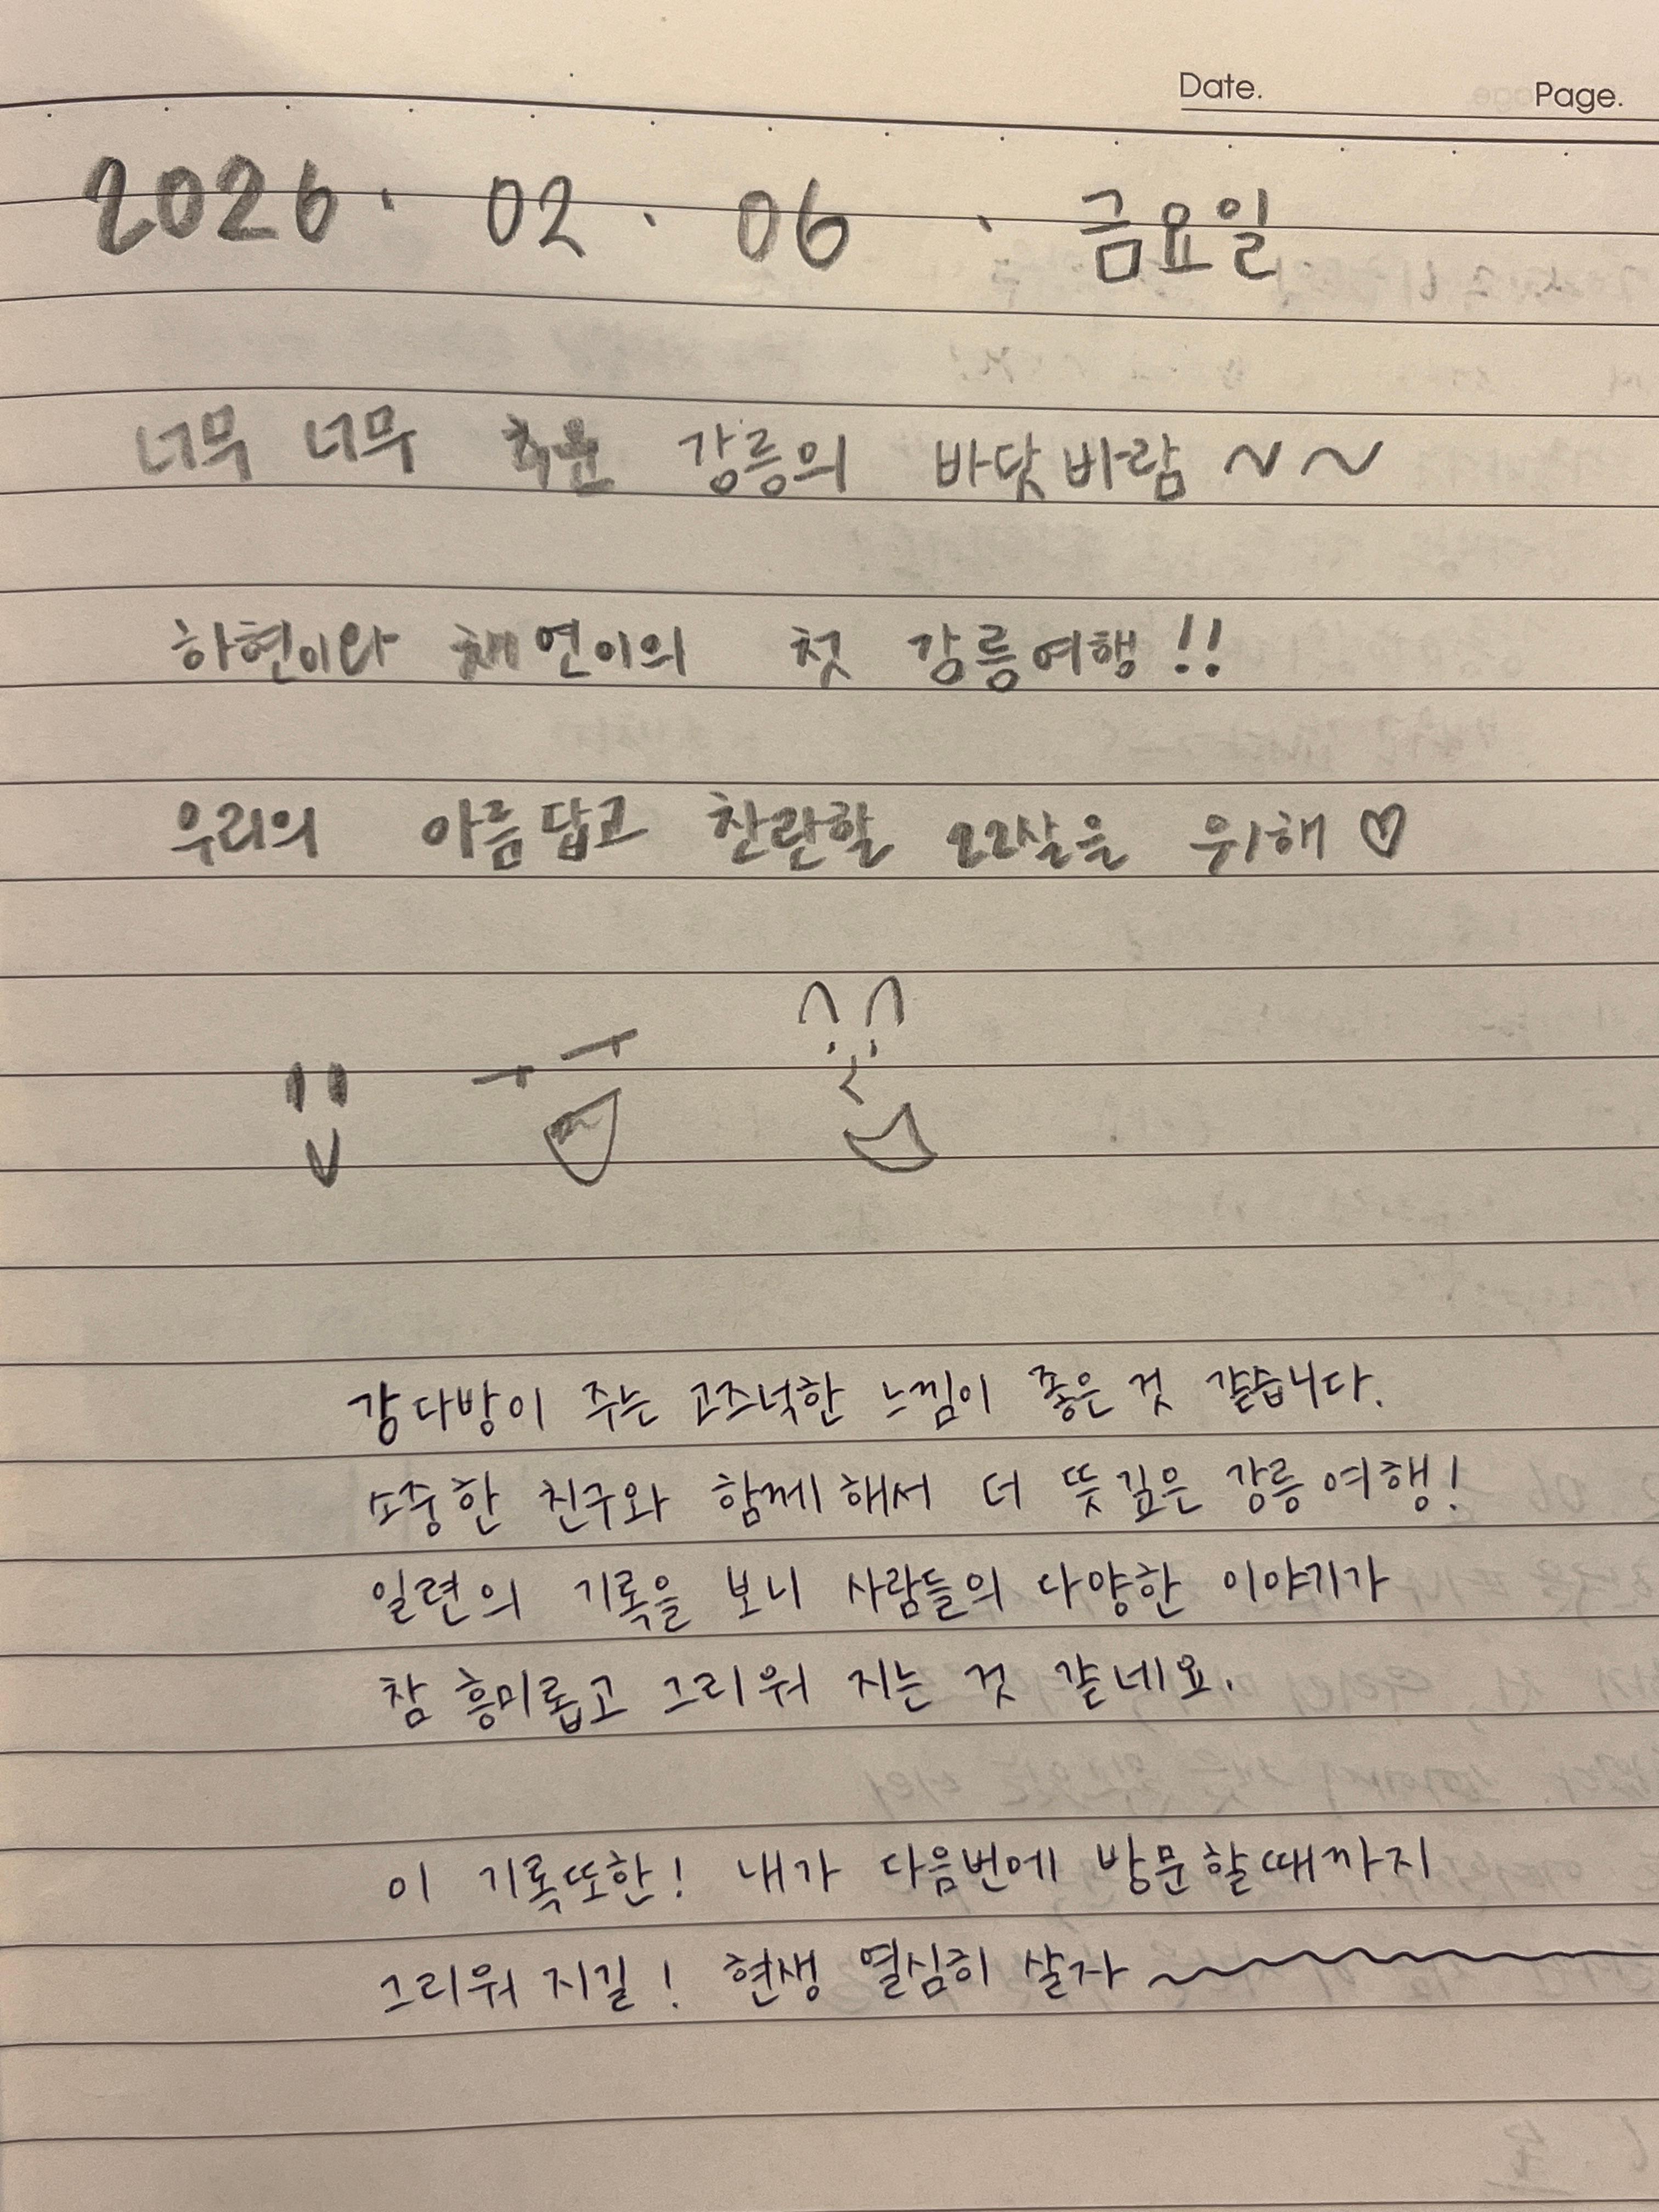 Date. Page.
2026. 02. 06. 금요일
너무 너무 추운 강릉의 바닷바람 ~~
하현이와 채연이의 첫 강릉여행!!
우리의 아름답고 찬란할 22살을 위해♡
강다방이 주는 고즈넉한 느낌이 좋은 것 같습니다.
소중한 친구와 함께해서 더 뜻깊은 강릉여행!
일련의 기록을 보니 사람들의 다양한 이야기가
참 흥미롭고 그리워 지는 것 같네요.
이 기록또한! 내가 다음번에 방문할때까지
그리워 지길! 현생 열심히 살자~